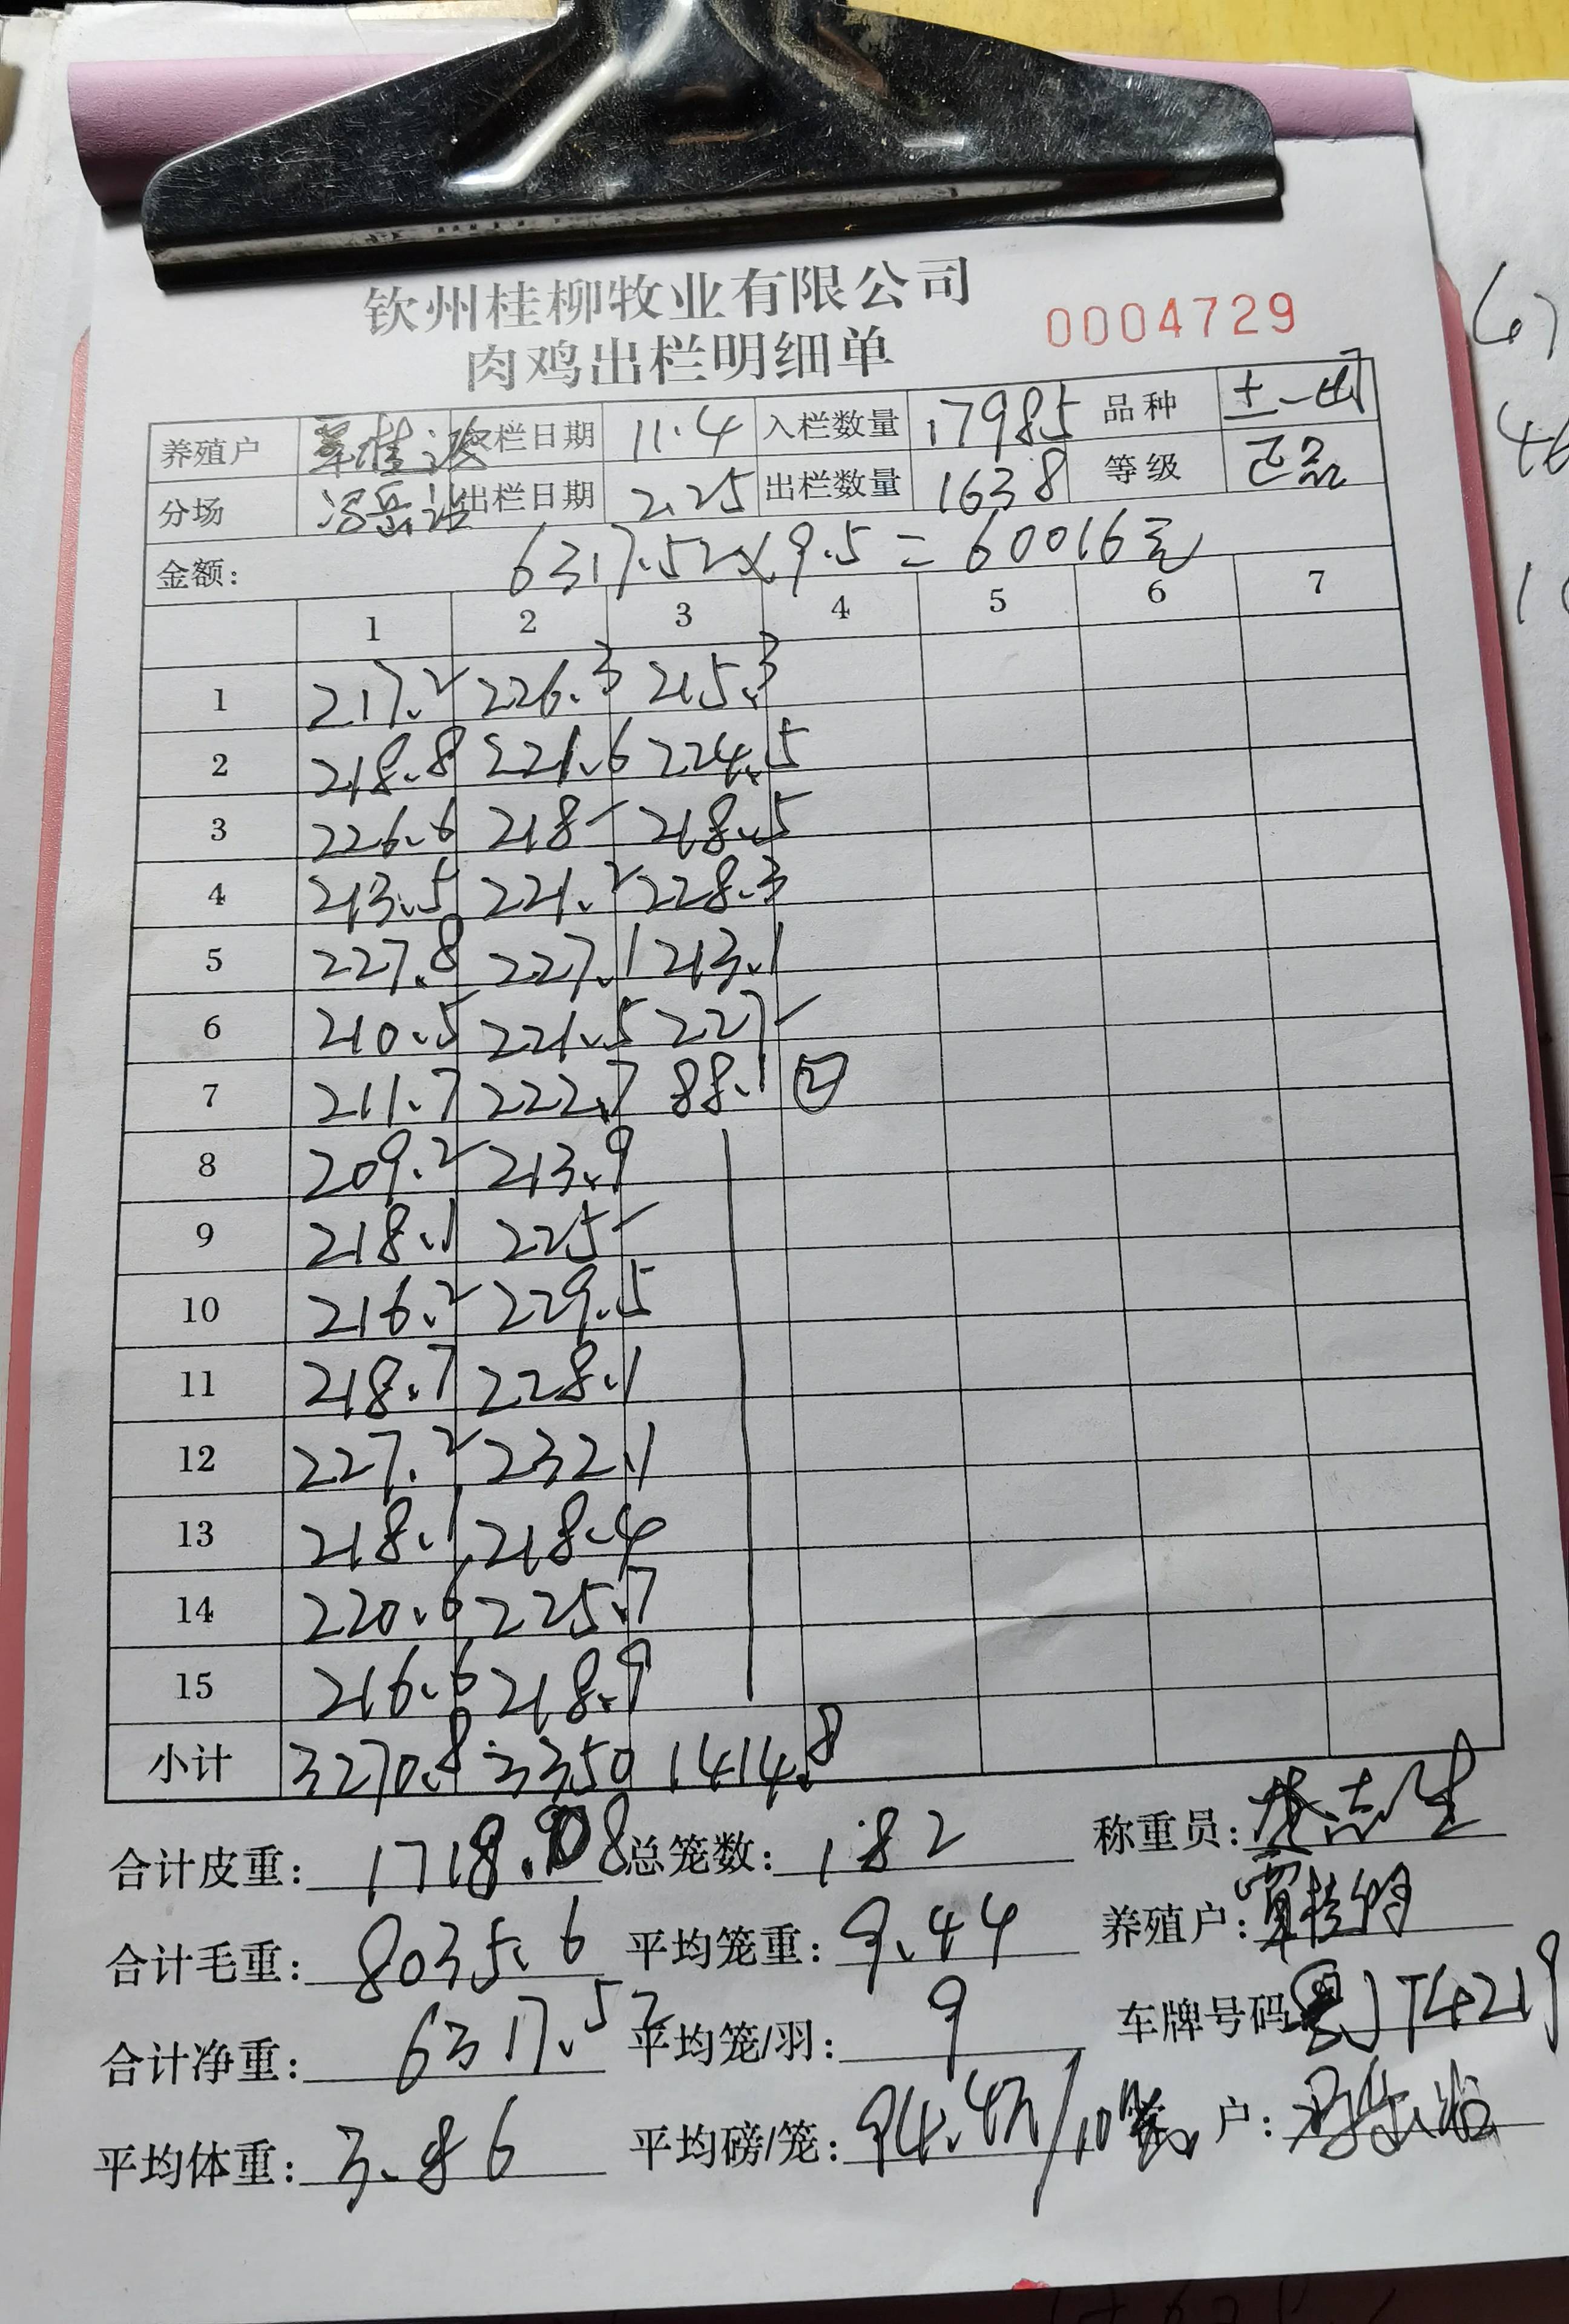 钦州桂柳牧业有限公司
肉鸡出栏明细单 0004729
养殖户 覃桂波 栏日期 11.4 入栏数量 17985 品种
分场 出栏日期 2.25 出栏数量 1638 等级 正品
金额: 6317.52×9.5=60016元
1 2 3 4 5 6 7
1 217.2 226.3 215.3
2 218.8 221.6 224.5
3 226.6 218- 218.5
4 213.5 221.2 228.3
5 227.8 227.1 213.1
6 210.5 221.5 227-
7 211.7 222.7 88.1
8 209.2 213.9
9 218.1 225-
10 216.2 229.5
11 218.7 228.1
12 227.2 232.1
13 218.1 218.4
14 220.6 225.7
15 216.6 218.9
小计 3270.8 3350 1414.8
合计皮重: 1718.08 总笼数: 182 称重员:
合计毛重: 8035.6 平均笼重: 9.44 养殖户:
合计净重: 6317.52 平均笼/羽: 9 车牌号码 粤JT4219
平均体重: 3.86 平均磅/笼: 94.4 /10笼 户: